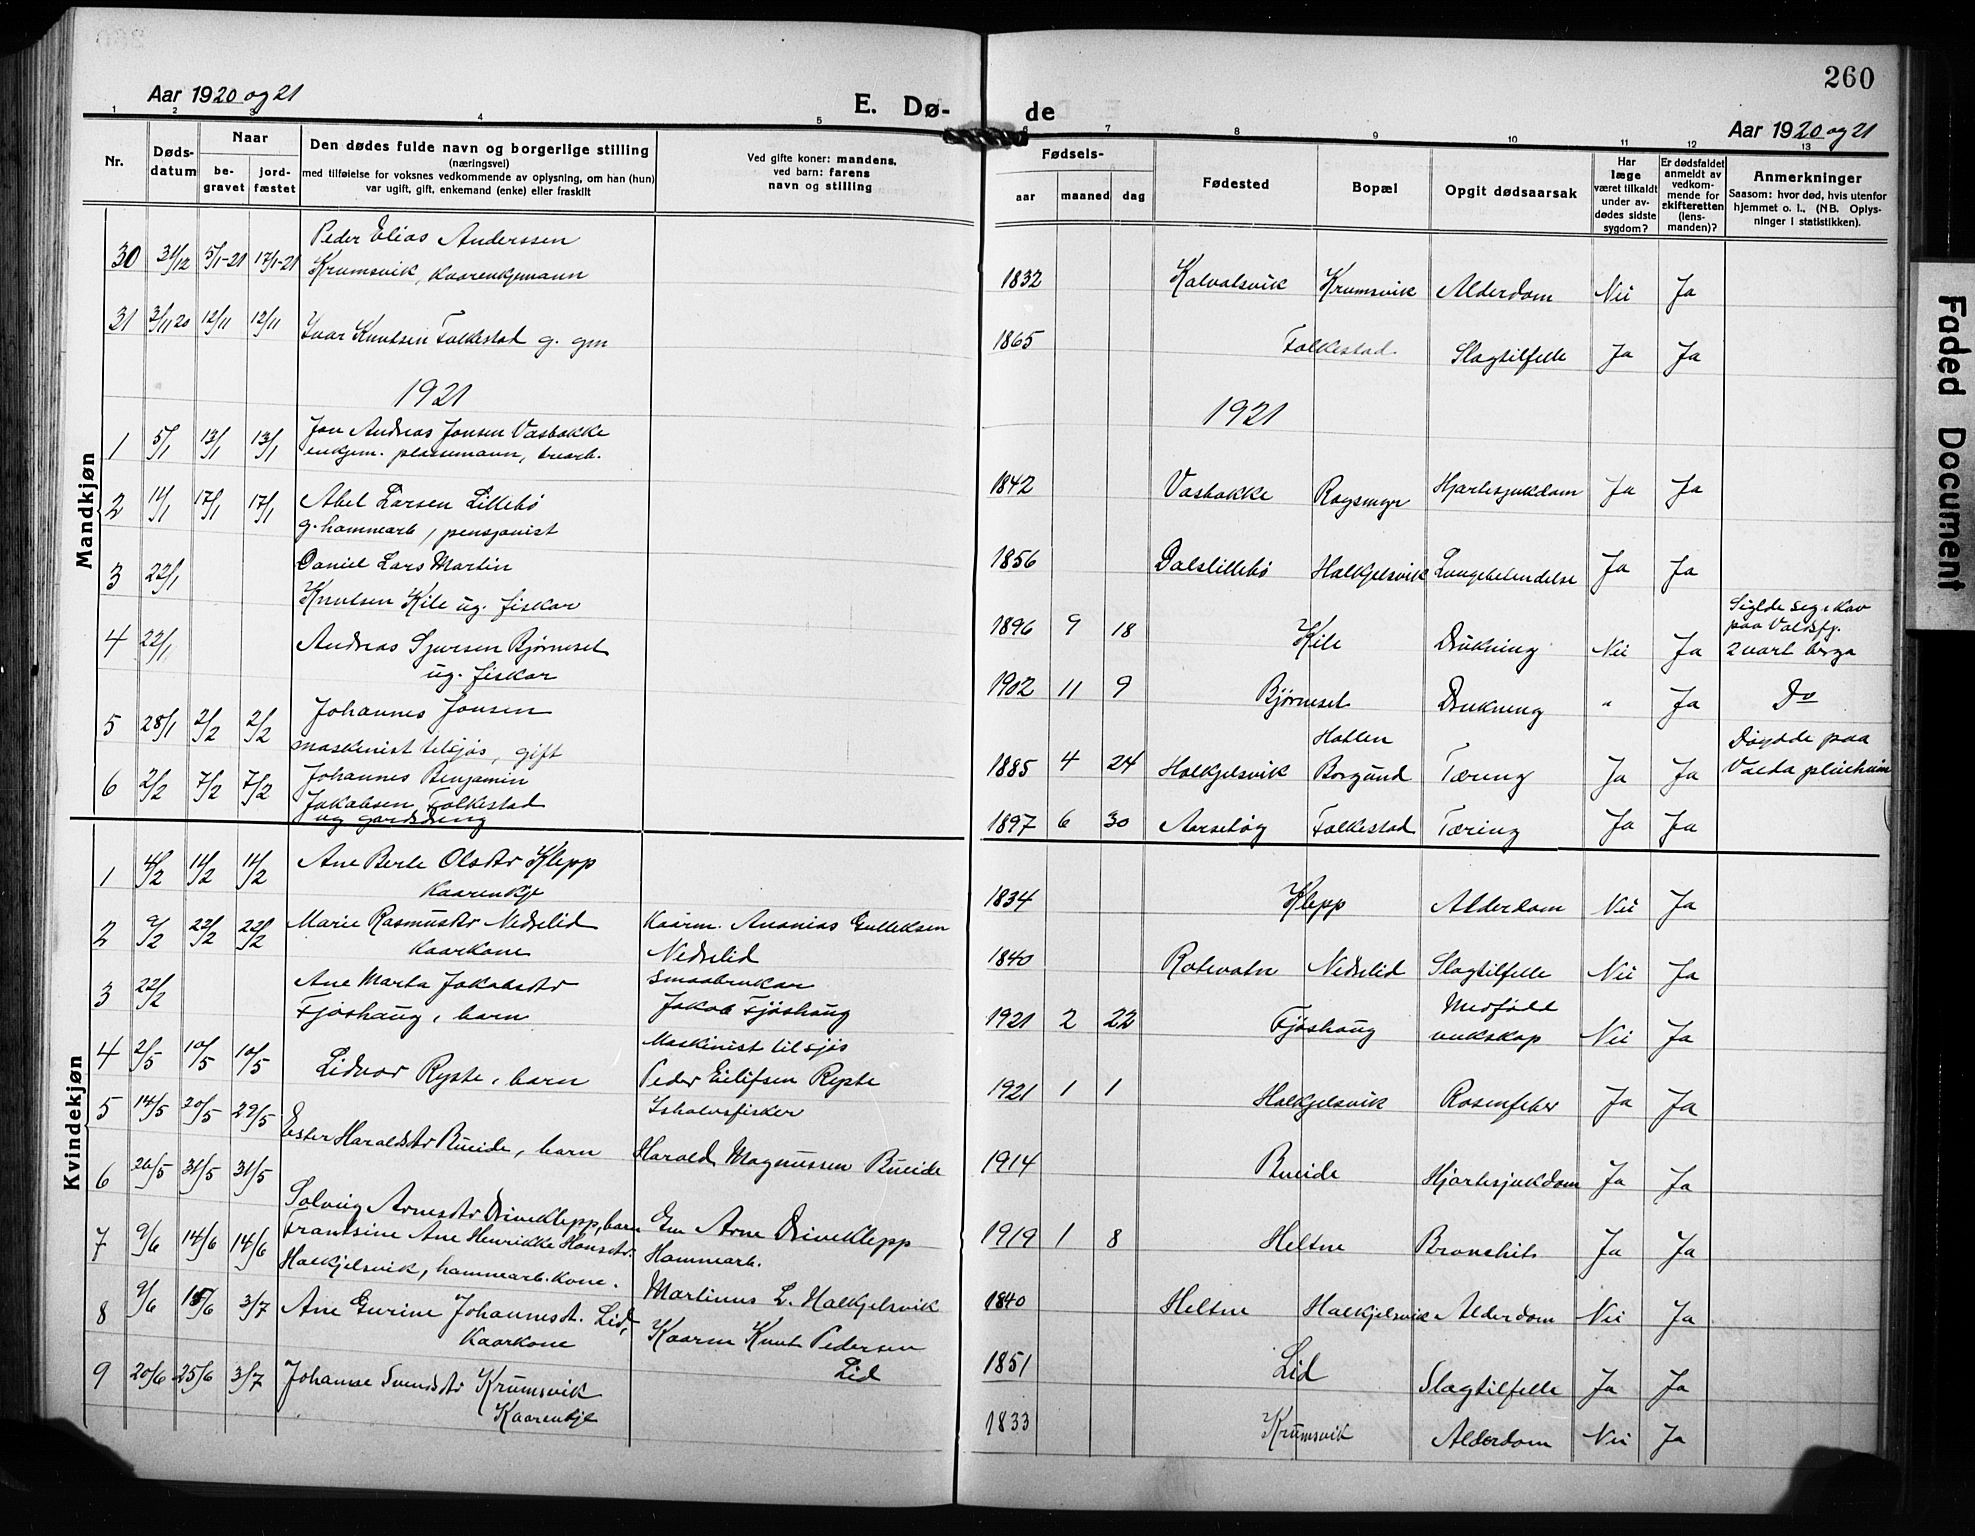 260
Aar 1920 og 21
E. Dø-
de
Aar 1920 og 21
1 2 3 4 5 6 7 8 9 10 11 12 13
Nr.
Døds-
datum
Naar
be-
gravet
jord-
fæstet
Den dødes fulde navn og borgerlige stilling
(næringsvei)
med tilføielse for voksnes vedkommende av oplysning, om han (hun)
var ugift, gift, enkemand (enke) eller fraskilt
Ved gifte koner: mandens,
ved barn: farens
navn og stilling
Fødsels-
aar
maaned
dag
Fødested
Bopæl
Opgit dødsaarsak
Har
læge
været tilkaldt
under av-
dødes sidste
sygdom?
Er dødsfaldet
anmeldt av
vedkom-
mende for
skifteretten
(lens-
manden)?
Anmerkninger
Saasom: hvor død, hvis utenfor
hjemmet o. l., (NB. Oplys-
ninger i statistikken).
Mandkjøn
30 31/12 5/1-21 17/1-21 Peder Elias Anderssen
Krumsvik, kaarenkjemann
1832 Kalvatsvik Krumsvik Alderdom Nei Ja
31 3/11 20 12/11 12/11 Ivar Knutsen Folkestad g. gm
1865 Folkestad Slagtilfelle Ja Ja
1921
1921
1 5/1 13/1 13/1 Jon Andreas Jonsen Vasbakke
enkjem. plassemann, trearb.
1842 Vasbakke Røysmyr Hjartesjukdom Ja Ja
2 11/1 17/1 17/1 Abel Larsen Lillebø
g. hammarb, pensjonist
1856 Dalslillebø Halkjelsvik Lungebetendelse Ja Ja
3 22/1 Daniel Lars Martin
Knutsen Kile ug. fiskar
1896 9 18 Kile Drukning Nei Ja
Siglde seg i kav
paa Voldsfj.
2 vart berga
4 22/1 Andreas Sjursen Bjørneset
ug. fiskar
1902 11 9 Bjørneset Drukning " Ja Do
5 28/1 2/2 2/2 Johannes Jonsen
maskinist tilsjøs, gift
1885 4 24 Halkjelsvik Hatlen
Borgund Tæring Ja Ja
Døydde paa
Volda pleiheim
6 2/2 7/2 7/2 Johannes Benjamin
Jakobsen Folkestad
ug gardsdreng
1897 6 30 Aarsetøg Folkestad Tæring Ja Ja
Kvindekjøn
1 4/2 14/2 14/2 Ane Berte Olsdtr Klepp
Kaarenkje
1834 Klepp Alderdom Nei Ja
2 9/2 22/2 22/2 Marie Rasmusdtr Nedrelid
Kaarkone
Kaarm. Ananias Gulleksen
Nedrelid
1840 Rotevatn Nedrelid Slagtilfelle Nei Ja
3 22/2 Ane Marta Jakobsdtr
Fjøshaug, barn
Smaabrukar
Jakob Fjøshaug
1921 2 22 Fjøshaug Medfødd
veikskap Nei Ja
4 2/5 10/5 10/5 Lidvor Ryste, barn
Maskinist tilsjøs
Peder Eilifsen Ryste
1921 1 1 Halkjelsvik Rosenfeber Ja Ja
5 14/5 20/5 29/5 Ester Haraldsdtr Bueide, barn
Ishavsfisker
Harald Magnussen Bueide
1914 Bueide Hjartesjukdom Ja Ja
6 26/5 31/5 31/5 Solveig Arnesdtr Driveklepp, barn
Em Arne Driveklepp
1919 1 8 Heltne Bronkit Ja Ja
7 9/6 14/6 14/6 Frantsine Ane Henrikke Hansdtr.
Halkjelsvik, hammarb. kone.
Hammarb.
Martinus L. Halkjelsvik
1840 Heltne Halkjelsvik Alderdom Nei Ja
8 9/6 15/6 3/7 Ane Gurine Johannesdt. Lid,
Kaarkone
Kaarm Knut Pedersen
Lid
1851 Lid Slagtilfelle Ja Ja
9 20/6 25/6 3/7 Johanne Svendsdtr Krumsvik
Kaarenkje
1833 Krumsvik Alderdom Nei Ja
Faded Document